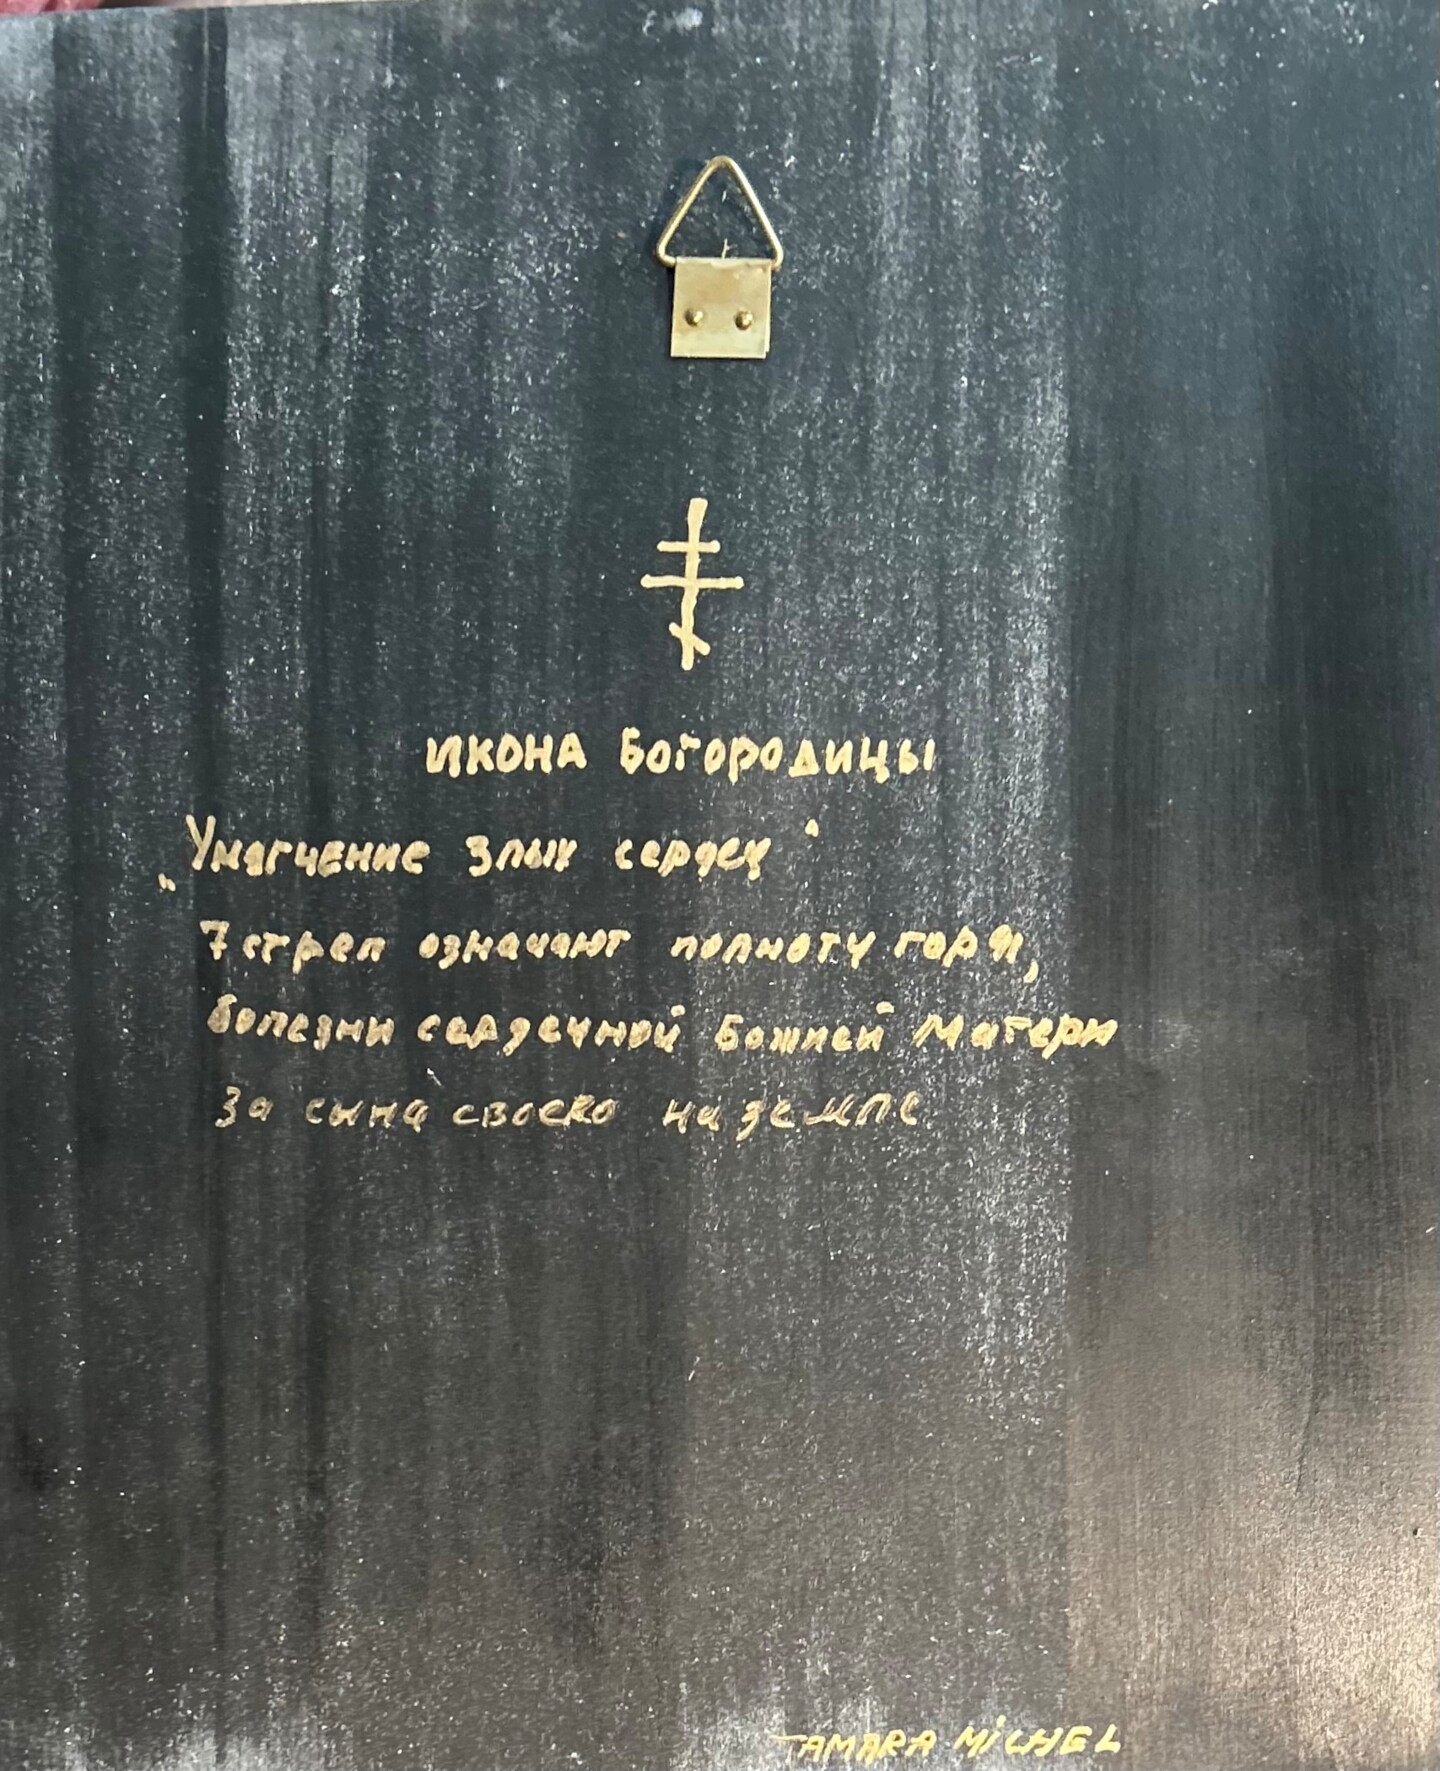 ИКОНА БОГОРОДИЦЫ
„Умягчение злых сердец“
7 стрел означают полноту горя,
болезни сердечной Божией Матери
за сына своего на земле
TAMARA MICHEL